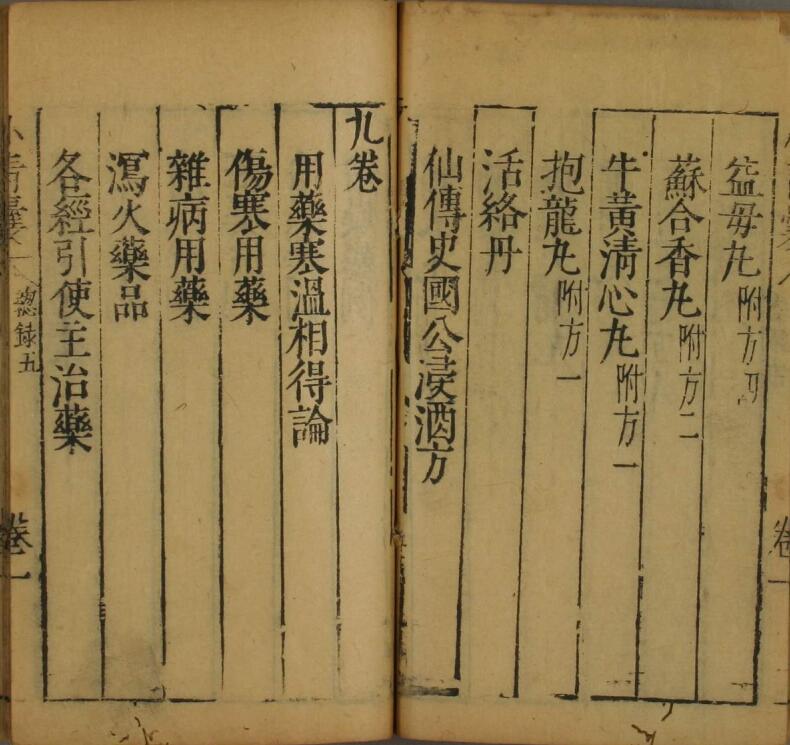 益毋丸 附方
蘇合香丸 附方二
牛黄清心丸 附方一
抱龍丸 附方一
活絡丹
仙傳史國公浸酒方
九卷
用藥寒溫相得論
傷寒用藥
雜病用藥
瀉火藥品
各經引使主治藥
小青囊 總録五 卷一
卷一